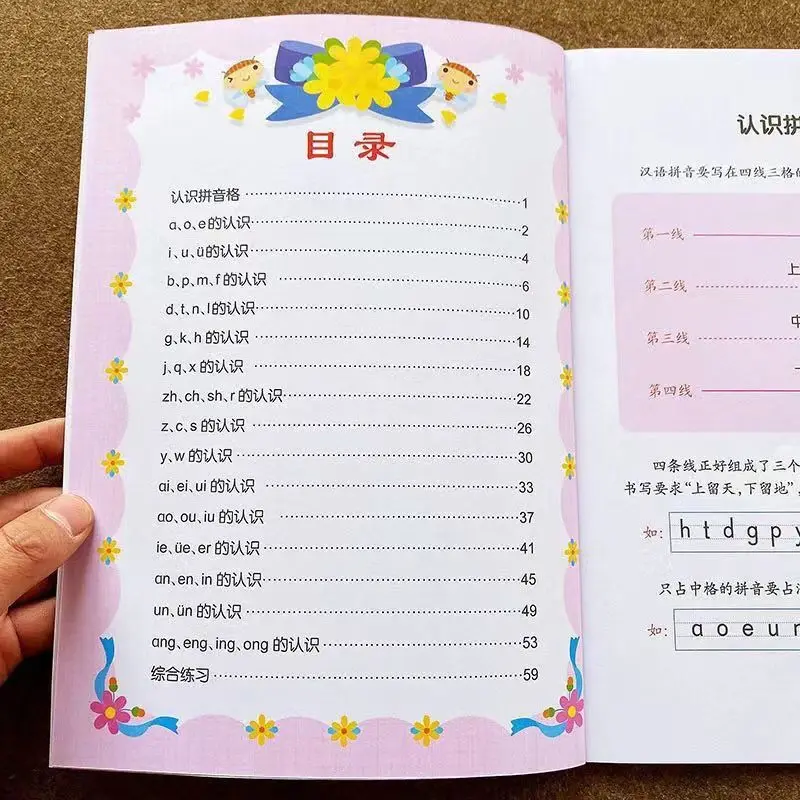 目录
认识拼音格 1
a、o、e的认识 2
i、u、ü的认识 4
b、p、m、f 的认识 6
d、t、n、l的认识 10
g、k、h 的认识 14
j、q、x 的认识 18
zh、ch、sh、r 的认识 22
z、c、s 的认识 26
y、w 的认识 30
ai、ei、ui 的认识 33
ao、ou、iu 的认识 37
ie、üe、er 的认识 41
an、en、in 的认识 45
un、ün 的认识 49
ang、eng、ing、ong 的认识 53
综合练习 59
认识拼
汉语拼音要写在四线三格的
第一线
上
第二线
中
第三线
第四线
四条线正好组成了三个
书写要求“上留天，下留地”，
如: h t d g p y
只占中格的拼音要占
如: a o e u n